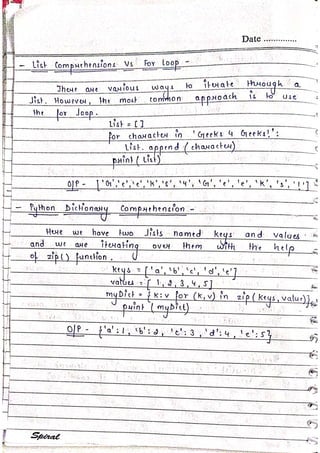 Date ..............
- List Comprehensions Vs For Loop -
There are various ways to iterate through a
list. However, the most common approach is to use
the for loop.
List = [ ]
for character in 'Geeks 4 Geeks!':
List. append (character)
print (List)
O/P - ['G','e','e','k','s','4','G','e','e','k','s','!']
- Python Dictionary Comprehension -
Here we have two lists named keys and values
and we are iterating over them with the help
of zip() function.
keys = ['a','b','c','d','e']
values = [1,2,3,4,5]
myDict = {k:v for (k,v) in zip(keys, value)}
print (myDict)
O/P - {'a':1, 'b':2, 'c':3, 'd':4, 'e':5}
Spiral